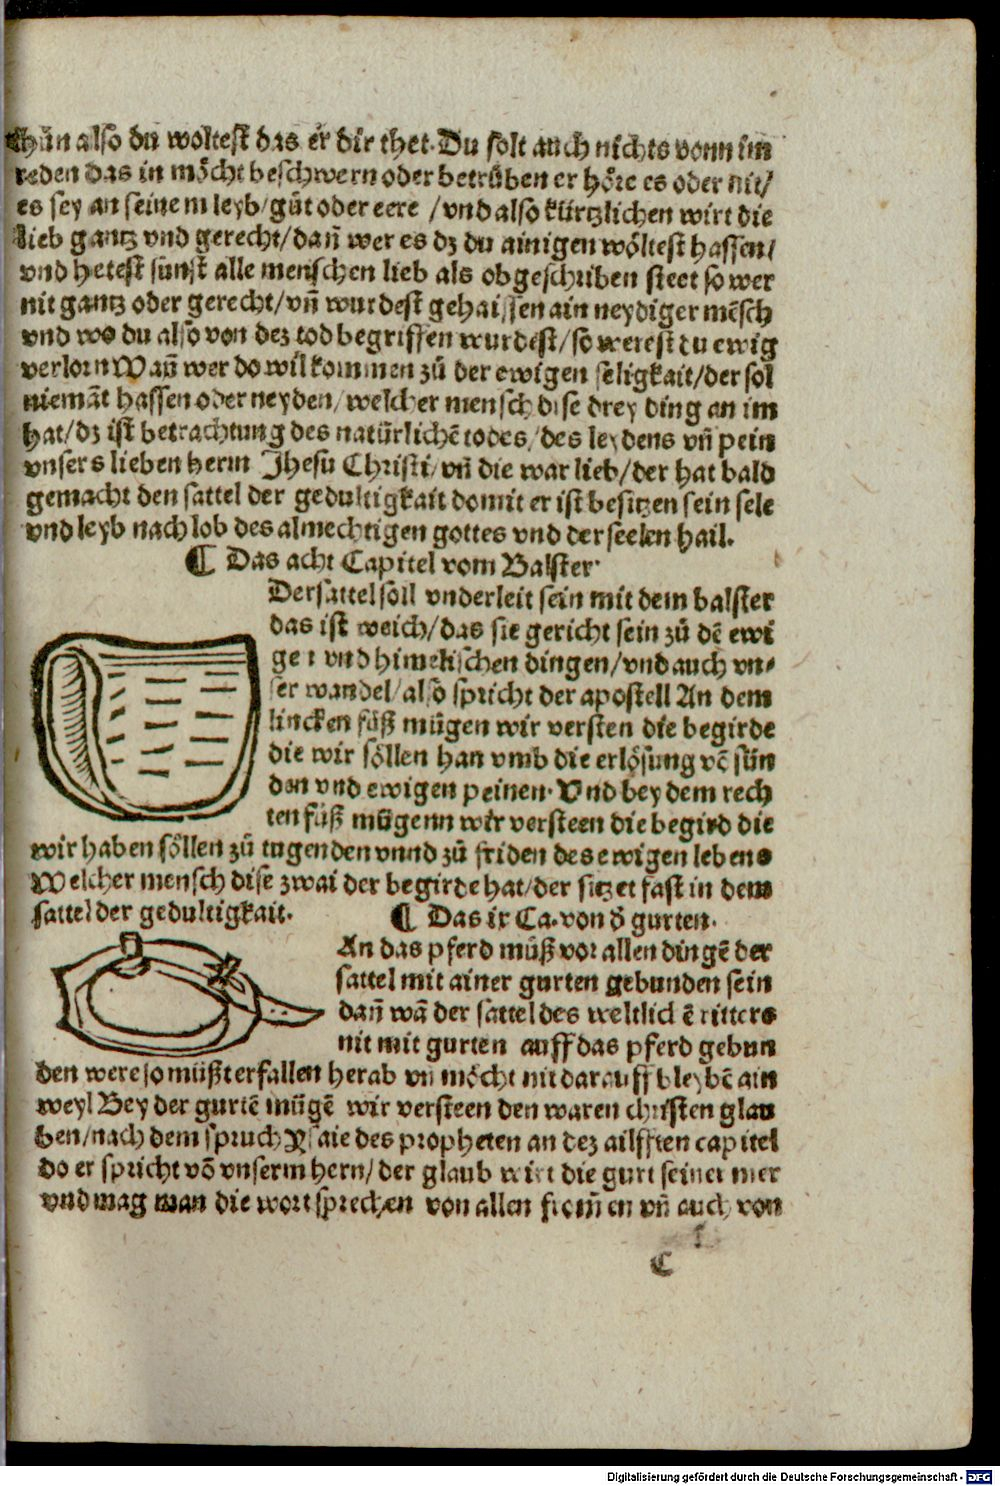 thůn also du woltest das er dir thet. Du solt auch nichts vonn im
reden das in möcht beschwern oder betrüben er höre es oder nit/
es sey an seinem leyb/ gůt oder eere / vnd also kürtzlichen wirt die
lieb gantz vnd gerecht/ dañ wer es dz du ainigen wöltest hassen/
vnd hetest sunst alle menschen lieb als obgeschriben steet so wer
nit gantz oder gerecht/ vñ wurdest gehaissen ain neydiger mẽsch
vnd wo du also von dez tod begriffen wurdest/ so werest du ewig
verlorn Wañ wer do wil kommen zů der ewigen seligkait/ der sol
niemãt hassen oder neyden/ welcher mensch dise drey ding an im
hat/ dz ist betrachtung des natürlichẽ todes/ des leydens vñ pein
vnsers lieben herrn Jhesu Christi/ vñ die war lieb/ der hat bald
gemacht den sattel der gedultigkait domit er ist besitzen sein sele
vnd leyb nach lob des almechtigen gottes vnd der seelen hail.
¶ Das acht Capitel vom Balster·
Der sattel soll vnderleit sein mit dem balster
das ist weich/ das sie gericht sein zů dẽ ewi
gen vnd himelischen dingen/ vnd auch vn⸗
ser wandel/ also spricht der apostell An dem
lincken fůß mügen wir versten die begirde
die wir söllen han vmb die erlösung võ sün
den vnd ewigen peinen· Vnd bey dem rech
ten fůß mügenn wir versteen die begird die
wir haben söllen zů tugenden vnnd zů friden des ewigen lebens
Welcher mensch dise zwai der begirde hat/ der sitzet fast in dem
sattel der gedultigkait.
¶ Das ix Ca. von ð gurten.
An das pferd můß vor allen dingẽ der
sattel mit ainer gurten gebunden sein
dañ wã der sattel des weltlichẽ ritters
nit mit gurten auff das pferd gebun
den were so můßt er fallen herab vñ möcht nit darauff bleybẽ ain
weyl Bey der gurtẽ mügẽ wir versteen den waren christen glau
ben/ nach dem spruch Ysaie des propheten an dez ailfften capitel
do er spricht võ vnserm hern/ der glaub wirt die gurt seiner
vnd mag man die wort sprechen von allen fromen vñ auch von
C
Digitalisierung gefördert durch die Deutsche Forschungsgemeinschaft - DFG